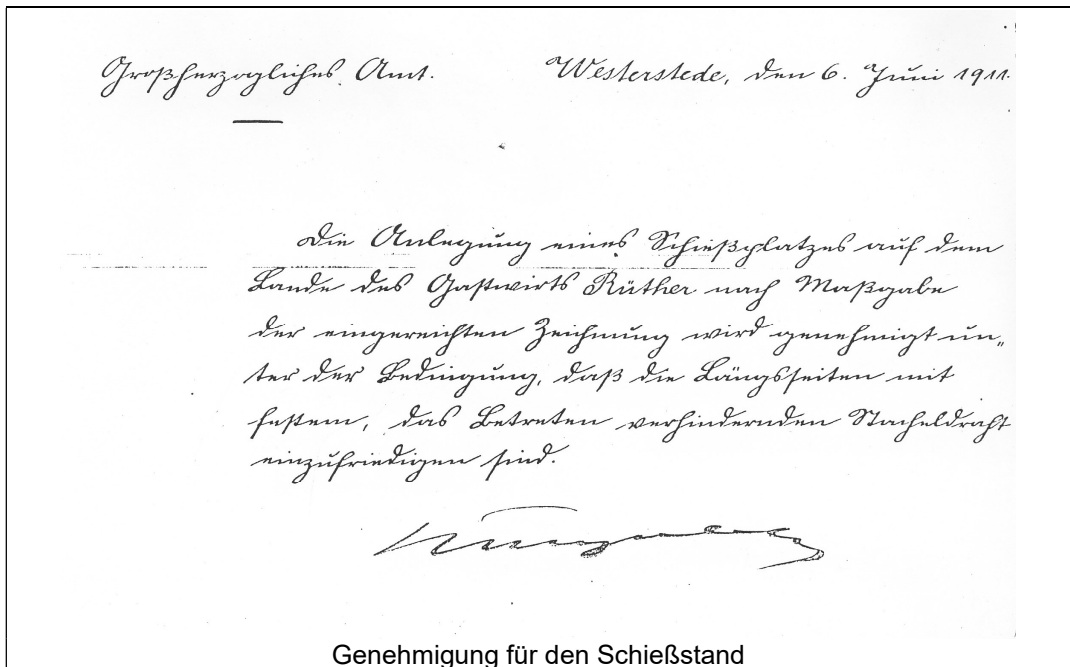 Großherzogliches Amt.
Westerstede, den 6. Juni 1911.
Die Anlegung eines Schießplatzes auf dem
Lande des Gastwirts Rüther nach Maßgabe
der eingereichten Zeichnung wird genehmigt un„
ter der Bedingung, daß die Längsseiten mit
festem, das Betreten verhindernden Stacheldraht
einzufriedigen sind.
Genehmigung für den Schießstand